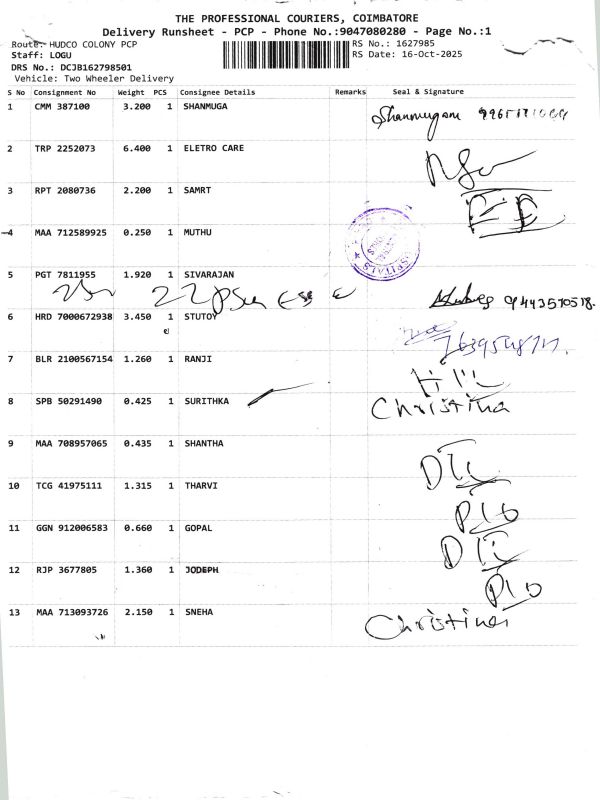 THE PROFESSIONAL COURIERS, COIMBATORE
Delivery Runsheet - PCP - Phone No.:9047080280 - Page No.:1
Route: HUDCO COLONY PCP RS No.: 1627985
Staff: LOGU RS Date: 16-Oct-2025
DRS No.: DCJB162798501
Vehicle: Two Wheeler Delivery
S No Consignment No Weight PCS Consignee Details Remarks Seal & Signature
1 CMM 387100 3.200 1 SHANMUGA Shanmugam
2 TRP 2252073 6.400 1 ELETRO CARE
3 RPT 2080736 2.200 1 SAMRT
4 MAA 712589925 0.250 1 MUTHU
5 PGT 7811955 1.920 1 SIVARAJAN
9443570518.
6 HRD 7000672938 3.450 1 STUTOY
7 BLR 2100567154 1.260 1 RANJI
8 SPB 50291490 0.425 1 SURITHKA Christina
9 MAA 708957065 0.435 1 SHANTHA
10 TCG 41975111 1.315 1 THARVI
11 GGN 912006583 0.660 1 GOPAL
12 RJP 3677805 1.360 1 JODEPH
13 MAA 713093726 2.150 1 SNEHA Christina